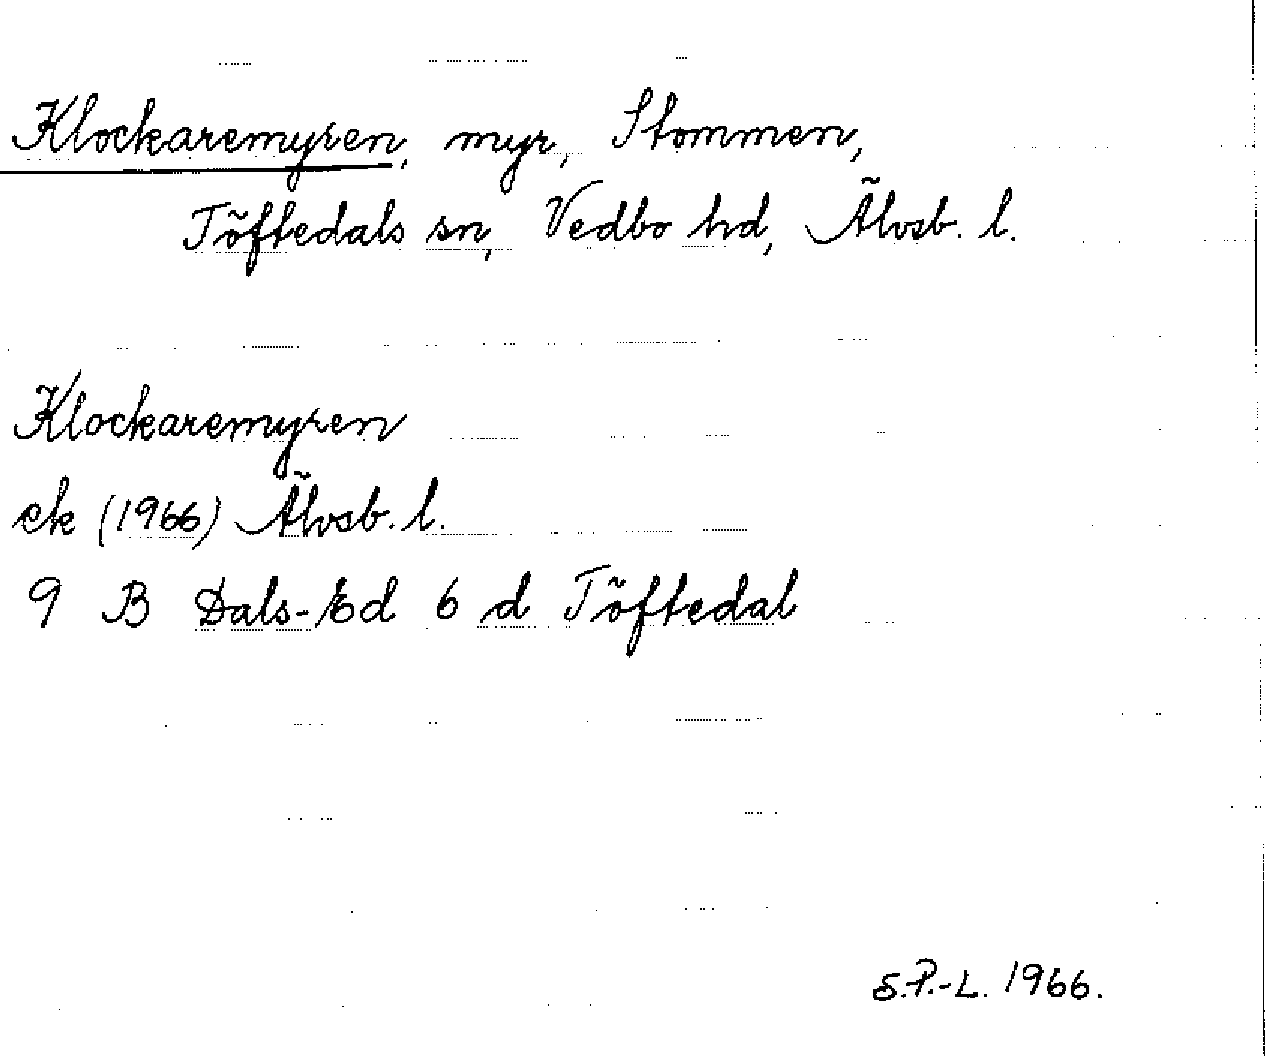 Klockaremyren, myr, Stommen,
Töftedals sn, Vedbo hd, Älvsb. l.
Klockaremyren
ek (1966) Älvsb. l.
9 B Dals-Ed 6 d Töftedal
S.P.-L. 1966.